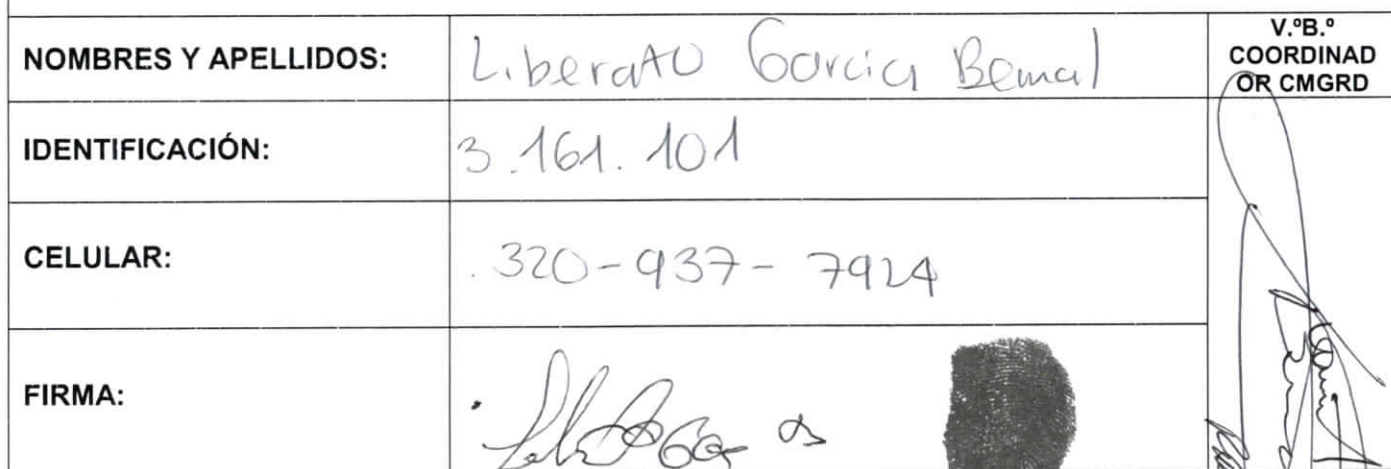 NOMBRES Y APELLIDOS: Liberato Garcia Bernal
V.ºB.º
COORDINAD
OR CMGRD
IDENTIFICACIÓN: 3.161.101
CELULAR: 320-937-7924
FIRMA: